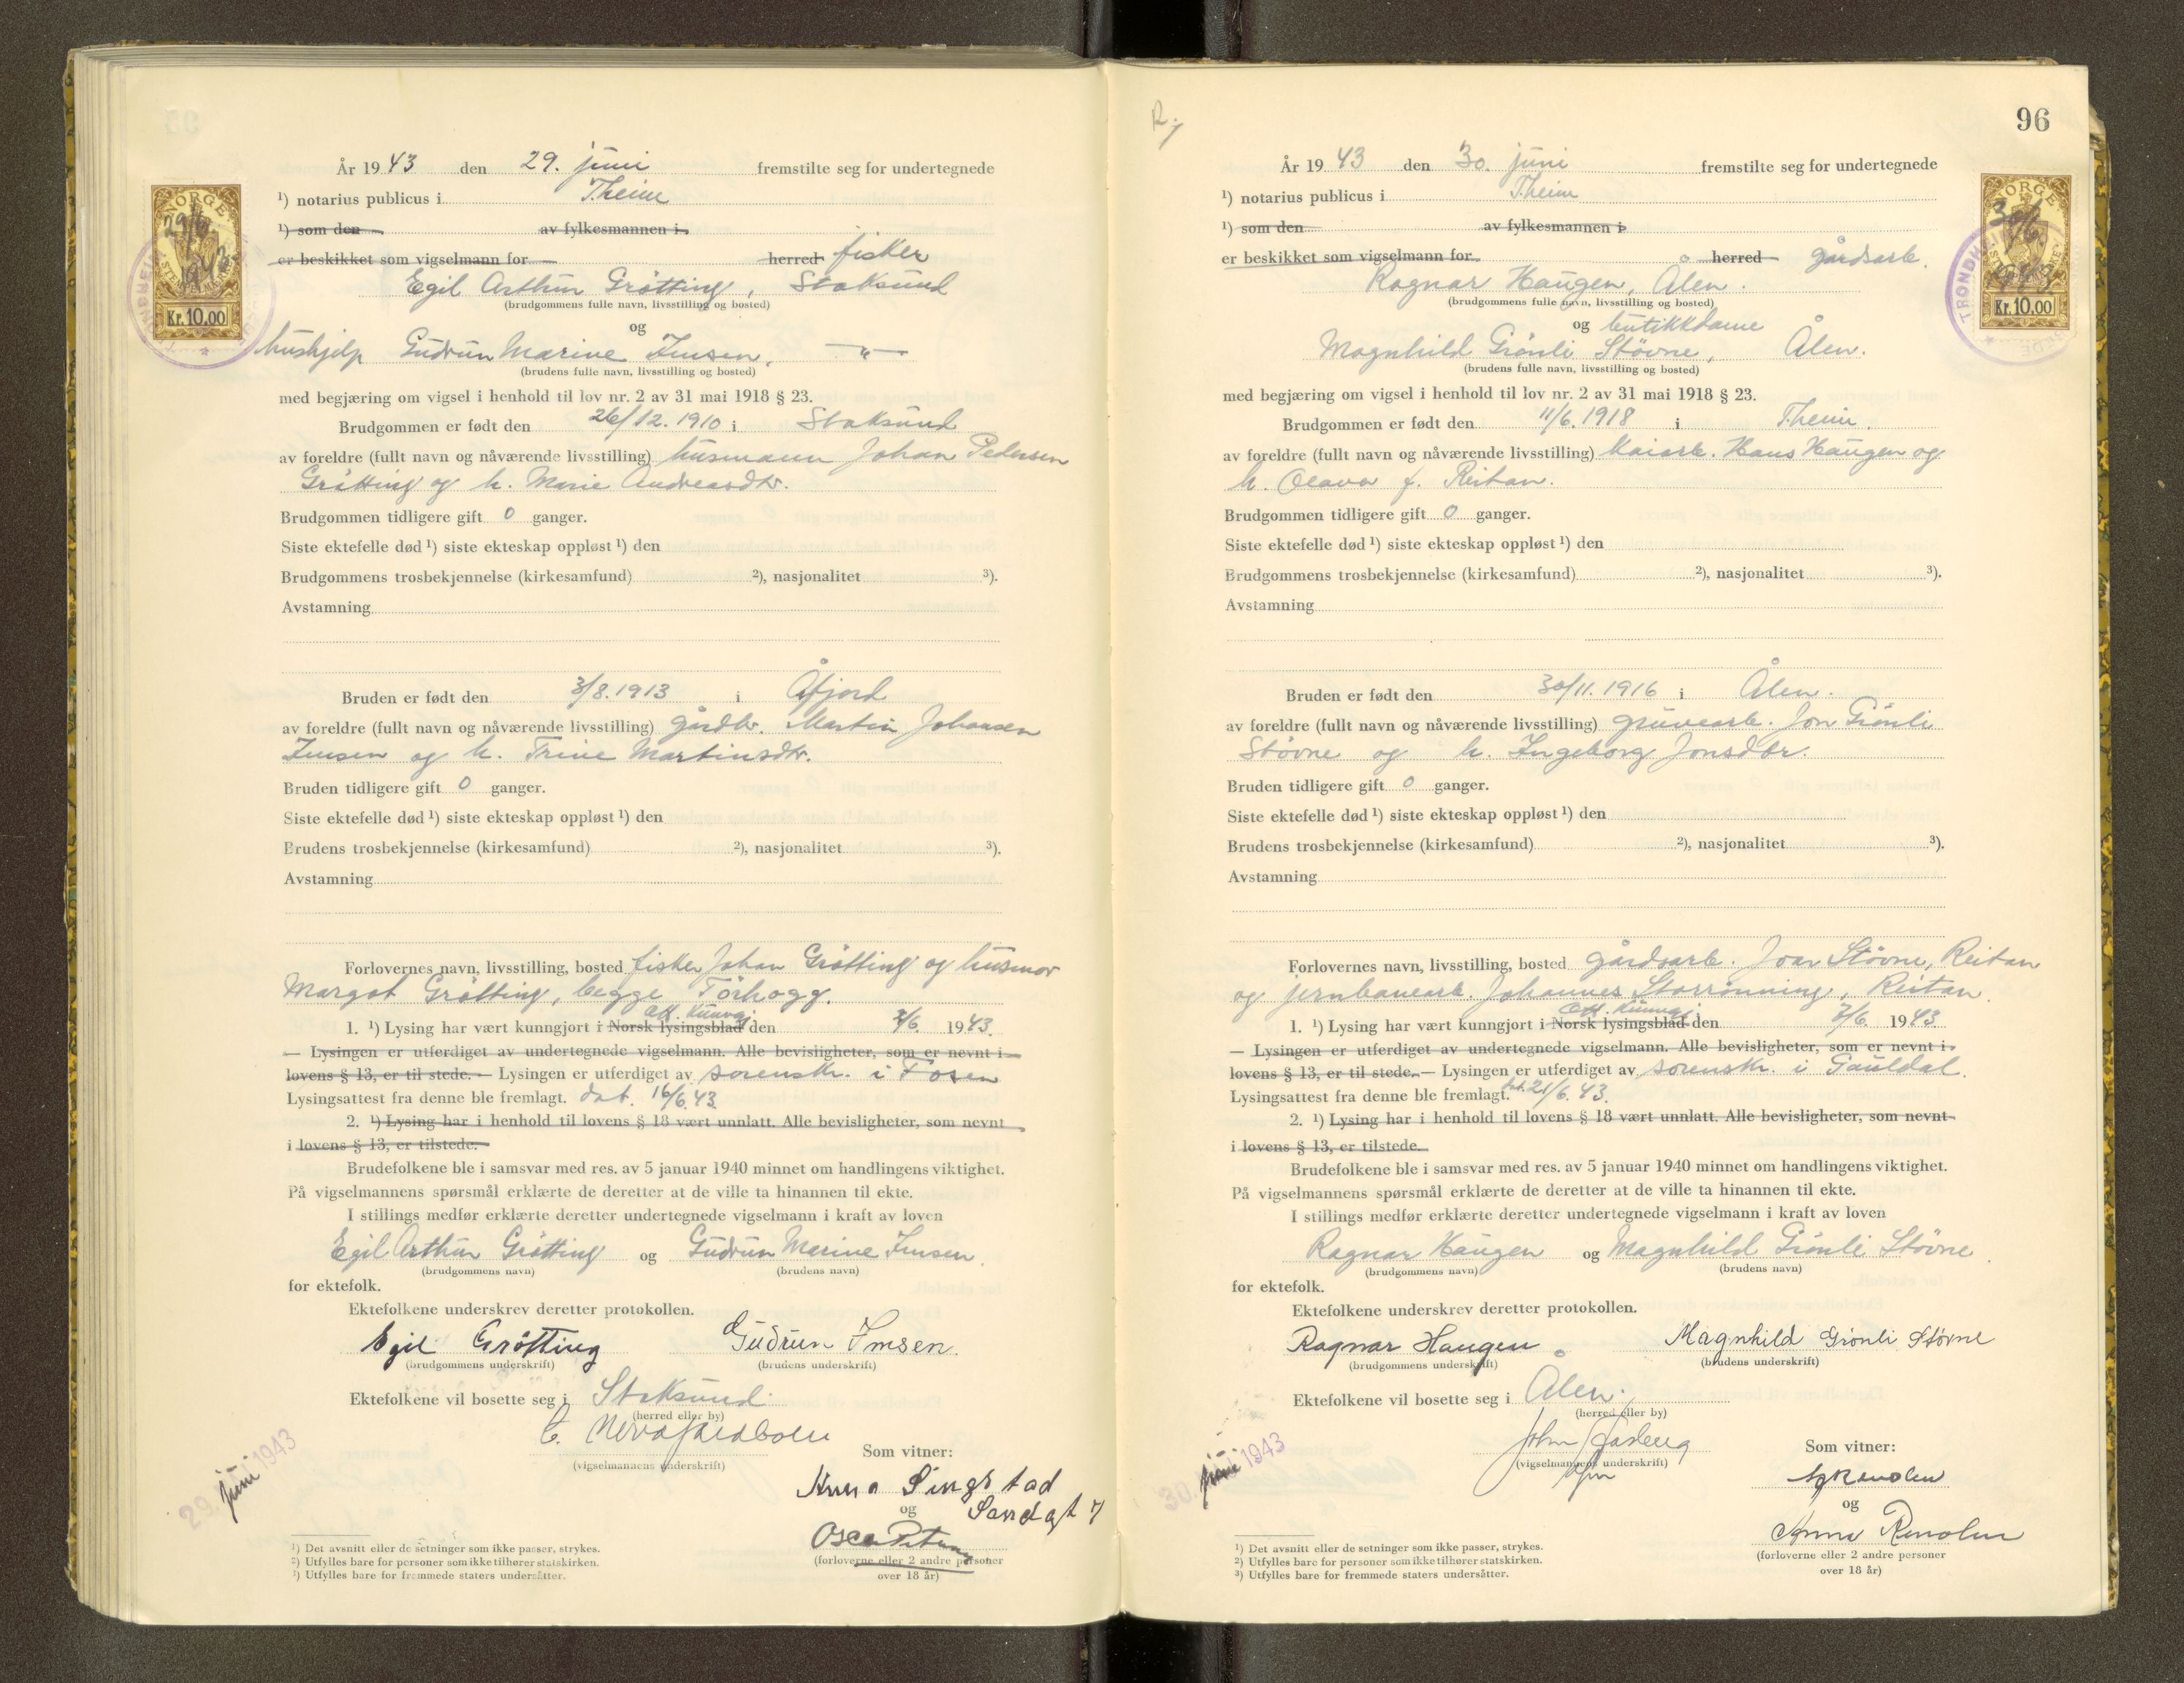 År 1943 den 29. juni fremstilte seg for undertegnede
¹) notarius publicus i T.heim
¹) som den av fylkesmannen i
er beskikket som vigselmann for herred fisker
Egil Arthur Gråtting, Stoksund
(brudgommens fulle navn, livsstilling og bosted)
og
hushjelp Gudrun Marine Imsen, — " —
(brudens fulle navn, livsstilling og bosted)
med begjæring om vigsel i henhold til lov nr. 2 av 31 mai 1918 § 23.
Brudgommen er født den 26/12. 1910 i Stoksund
av foreldre (fullt navn og nåværende livsstilling) husmann Johan Pedersen
Gråtting og h. Marie Andreasdtr.
Brudgommen tidligere gift 0 ganger.
Siste ektefelle død ¹) siste ekteskap oppløst ¹) den
Brudgommens trosbekjennelse (kirkesamfund) ²), nasjonalitet ³).
Avstamning
Bruden er født den 3/8. 1913 i Åfjord
av foreldre (fullt navn og nåværende livsstilling) gårdbr. Martin Johansen
Imsen og h. Trine Martinsdtr.
Bruden tidligere gift 0 ganger.
Siste ektefelle død ¹) siste ekteskap oppløst ¹) den
Brudens trosbekjennelse (kirkesamfund) ²), nasjonalitet ³).
Avstamning
Forlovernes navn, livsstilling, bosted fisker Johan Gråtting og husmor
Margot Gråtting, begge Tørhogg.
Off. Kunngj.
1. ¹) Lysing har vært kunngjort i Norsk lysingsblad den 2/6. 1943.
— Lysingen er utferdiget av undertegnede vigselmann. Alle bevisligheter, som er nevnt i
lovens § 13, er til stede. — Lysingen er utferdiget av sorenskr. i Fosen
Lysingsattest fra denne ble fremlagt. dat. 16/6. 43.
2. ¹) Lysing har i henhold til lovens § 18 vært unnlatt. Alle bevisligheter, som nevnt
i lovens § 13, er tilstede.
Brudefolkene ble i samsvar med res. av 5 januar 1940 minnet om handlingens viktighet.
På vigselmannens spørsmål erklærte de deretter at de ville ta hinannen til ekte.
I stillings medfør erklærte deretter undertegnede vigselmann i kraft av loven
Egil Arthur Gråtting og Gudrun Marine Imsen.
(brudgommens navn) (brudens navn)
for ektefolk.
Ektefolkene underskrev deretter protokollen.
Egil Gråtting Gudrun Imsen.
(brudgommens underskrift) (brudens underskrift)
Ektefolkene vil bosette seg i Stoksund.
(herred eller by)
Som vitner:
(vigselmannens underskrift)
29. juni 1943
Anna Singstad
og Sandgt 7
(forloverne eller 2 andre personer
over 18 år)
¹) Det avsnitt eller de setninger som ikke passer, strykes.
²) Utfylles bare for personer som ikke tilhører statskirken.
³) Utfylles bare for fremmede staters undersåtter.
NORGE
29/6
1943
Kr. 10.00
96
År 1943 den 30. juni fremstilte seg for undertegnede
¹) notarius publicus i T.heim
¹) som den av fylkesmannen i
er beskikket som vigselmann for herred gårdsarb.
Ragnar Haugen, Ålen.
(brudgommens fulle navn, livsstilling og bosted)
og butikkdame
Magnhild Grønli Støvne, Ålen.
(brudens fulle navn, livsstilling og bosted)
med begjæring om vigsel i henhold til lov nr. 2 av 31 mai 1918 § 23.
Brudgommen er født den 11/6. 1918 i T.heim.
av foreldre (fullt navn og nåværende livsstilling) kaiarb. Hans Haugen og
h. Olava f. Reitan.
Brudgommen tidligere gift 0 ganger.
Siste ektefelle død ¹) siste ekteskap oppløst ¹) den
Brudgommens trosbekjennelse (kirkesamfund) ²), nasjonalitet ³).
Avstamning
Bruden er født den 30/11. 1916 i Ålen.
av foreldre (fullt navn og nåværende livsstilling) gruvearb. Jon Grønli
Støvne og h. Ingeborg Jonsdtr.
Bruden tidligere gift 0 ganger.
Siste ektefelle død ¹) siste ekteskap oppløst ¹) den
Brudens trosbekjennelse (kirkesamfund) ²), nasjonalitet ³).
Avstamning
Forlovernes navn, livsstilling, bosted gårdsarb. Joar Støvne, Reitan
og jernbanearb. Johannes Storrønning, Reitan.
Off. Kunngj.
1. ¹) Lysing har vært kunngjort i Norsk lysingsblad den 7/6. 1943.
— Lysingen er utferdiget av undertegnede vigselmann. Alle bevisligheter, som er nevnt i
lovens § 13, er til stede. — Lysingen er utferdiget av sorenskr. i Gauldal.
Lysingsattest fra denne ble fremlagt. dat. 21/6. 43.
2. ¹) Lysing har i henhold til lovens § 18 vært unnlatt. Alle bevisligheter, som nevnt
i lovens § 13, er tilstede.
Brudefolkene ble i samsvar med res. av 5 januar 1940 minnet om handlingens viktighet.
På vigselmannens spørsmål erklærte de deretter at de ville ta hinannen til ekte.
I stillings medfør erklærte deretter undertegnede vigselmann i kraft av loven
Ragnar Haugen og Magnhild Grønli Støvne
(brudgommens navn) (brudens navn)
for ektefolk.
Ektefolkene underskrev deretter protokollen.
Ragnar Haugen Magnhild Grønli Støvne
(brudgommens underskrift) (brudens underskrift)
Ektefolkene vil bosette seg i Ålen.
(herred eller by)
Som vitner:
(vigselmannens underskrift)
30. juni 1943
og
Anna Renolen
(forloverne eller 2 andre personer
over 18 år)
¹) Det avsnitt eller de setninger som ikke passer, strykes.
²) Utfylles bare for personer som ikke tilhører statskirken.
³) Utfylles bare for fremmede staters undersåtter.
NORGE
30/6
1943
TRONDHEIM
Kr. 10.00